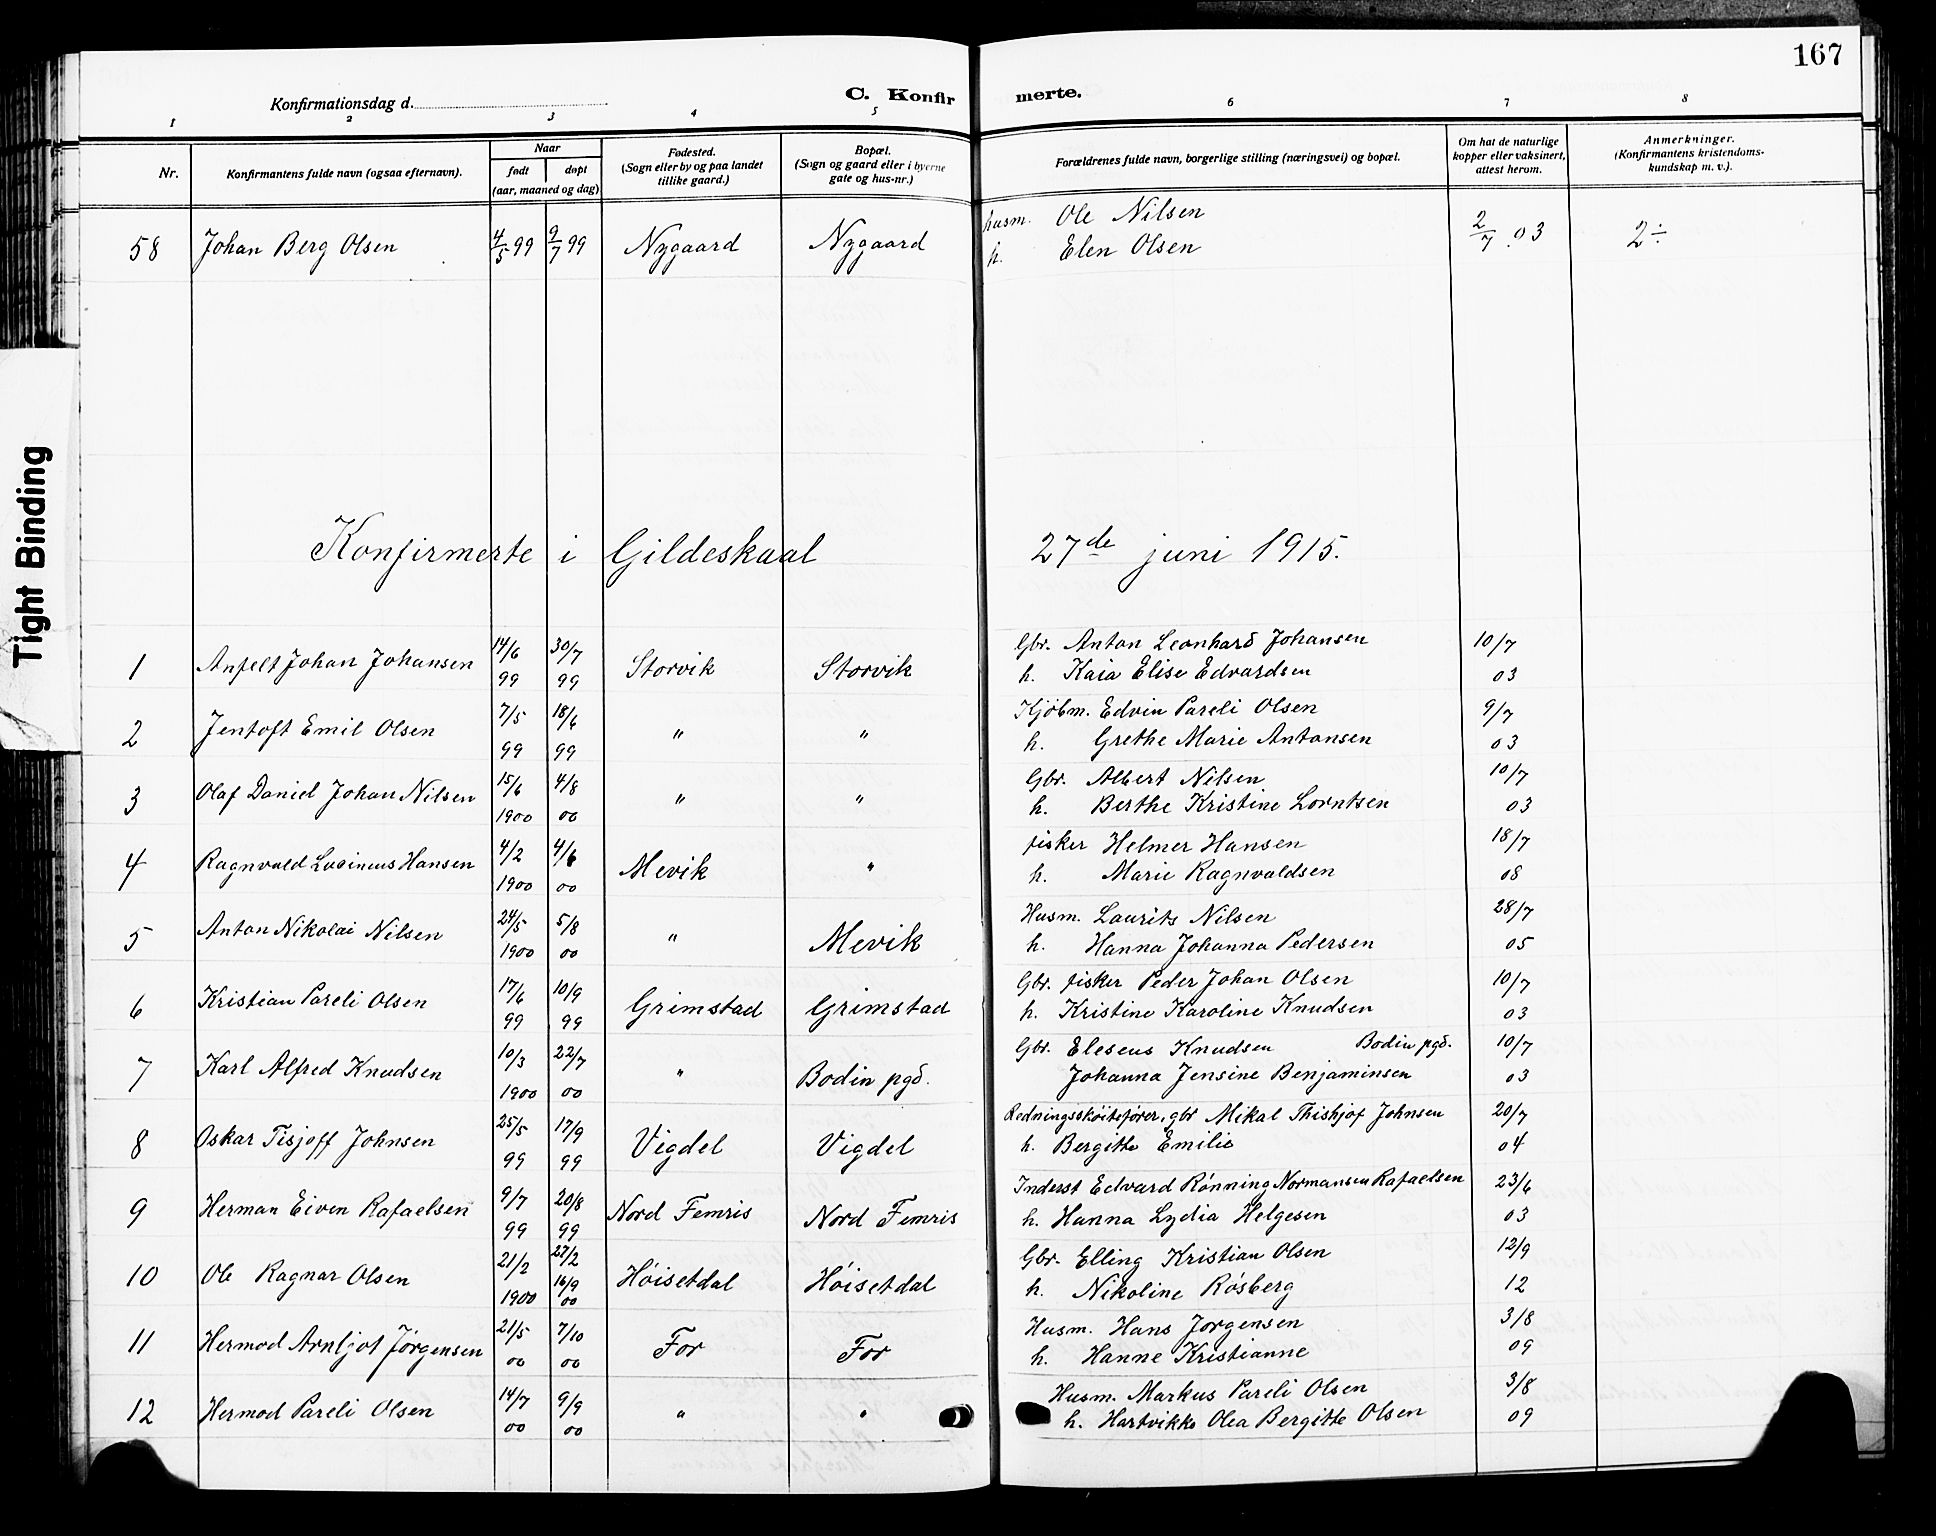 167
Konfirmationsdag d.
C. Konfir merte.
1 2 3 4 5 6 7 8
Nr. Konfirmantens fulde navn (ogsaa efternavn). Naar født døpt (aar, maaned og dag) Fødested. (Sogn eller by og paa landet tillike gaard.) Bopæl. (Sogn og gaard eller i byerne gate og hus-nr.) Forældrenes fulde navn, borgerlige stilling (næringsvei) og bopæl. Om hat de naturlige kopper eller vaksinert, attest herom. Anmerkninger. (Konfirmantens kristendoms-kundskap m. v.).
58 Johan Berg Olsen 4/5 99 9/7 99 Nygaard Nygaard husm. Ole Nilsen 2/7 03 2÷
h. Elen Olsen
Konfirmerte i Gildeskaal 27de juni 1915.
1 Anfelt Johan Johansen 14/6 99 30/7 99 Storvik Storvik Gbr. Anton Leonhard Johansen 10/7
h. Kaia Elise Edvardsen 03
2 Jentoft Emil Olsen 7/5 99 18/6 99 " " Kjöbm. Edvin Pareli Olsen 9/7
h. Grethe Marie Antonsen 03
3 Olaf Daniel Johan Nilsen 15/6 1900 4/8 00 " " Gbr. Albert Nilsen 10/7
h. Berthe Kristine Lorntsen 03
4 Ragnvald Lucinius Hansen 4/2 1900 4/6 00 Mevik " fisker Helmer Hansen 18/7
h. Marie Ragnvaldsen 08
5 Anton Nikolai Nilsen 24/5 1900 5/8 00 " Mevik Husm. Laurits Nilsen 28/7
h. Hanna Johanna Pedersen 05
6 Kristian Pareli Olsen 17/6 99 10/9 99 Grimstad Grimstad Gbr. fisker Peder Johan Olsen 10/7
h. Kristine Karoline Knudsen 03
7 Karl Alfred Knudsen 10/3 1900 22/7 00 " Bodin pgd. Gbr. Eleseus Knudsen Bodin pgd. 10/7
Johanna Jensine Benjaminsen 03
8 Oskar Tisjoff Johnsen 25/5 99 17/9 99 Vigdel Vigdel Redningsskøitefører, gbr Mikal Thishjof Johnsen 20/7
h. Bergitte Emilie 04
9 Herman Eiven Rafaelsen 9/7 99 20/8 99 Nord Femris Nord Femris Inderst Edvard Rønning Normansen Rafaelsen 23/6
h. Hanna Lydia Helgesen 03
10 Ole Ragnar Olsen 21/2 1900 27/2 16/9 00 Høisetdal Høisetdal Gbr. Elling Kristian Olsen 12/9
h. Nikoline Røsberg 12
11 Hermod Arnljot Jørgensen 21/5 00 7/10 00 For For Husm. Hans Jorgensen 3/8
h. Hanne Kristianne 09
12 Hermod Pareli Olsen 14/7 00 9/9 00 " " Husm. Markus Pareli Olsen 3/8
h. Hartvikke Olea Bergitte Olsen 09
Tight Binding